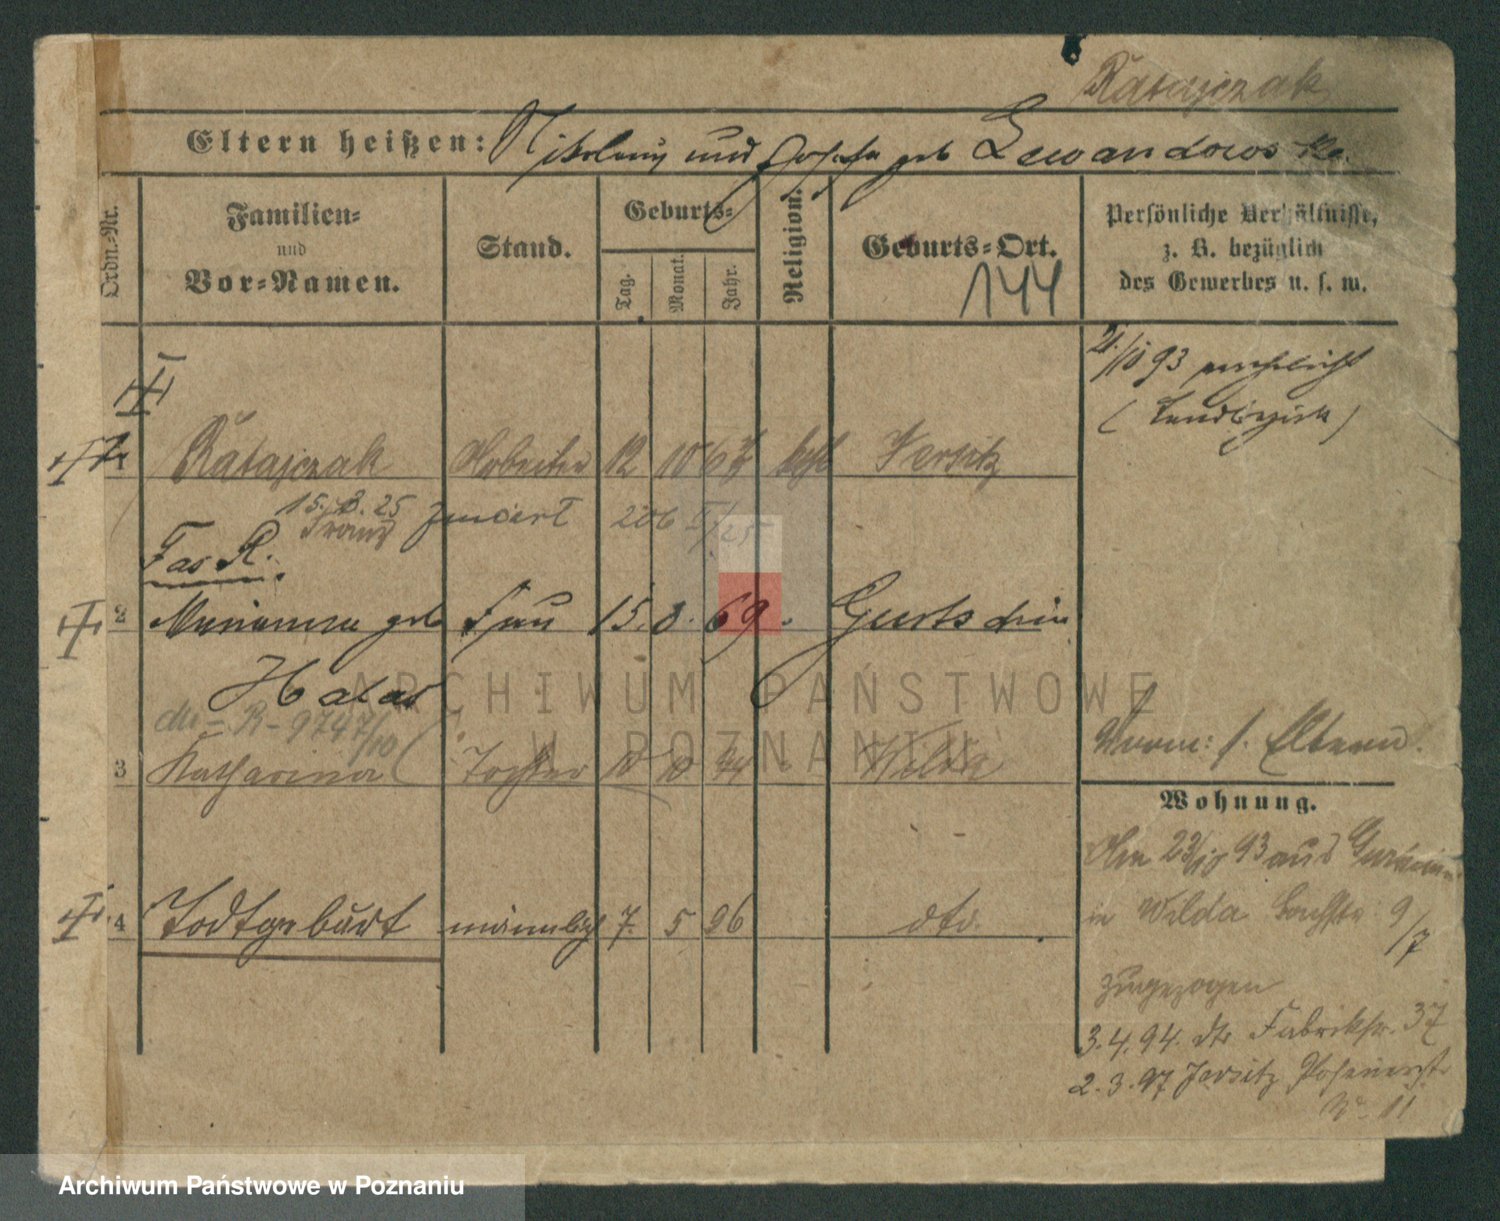 Ratajczak
Eltern heißen: Nikolaus und Josefa geb Lewandowska.
Ordn.-Nr.
Familien-
und
Vor-Namen.
Stand.
Geburts-
Tag.
Monat.
Jahr.
Religion.
Geburts-Ort.
144
Persönliche Verhältnisse,
z. B. bezüglich
des Gewerbes u. s. w.
21/10 93
(Landbezirk)
1 Ratajczak Arbeiter 12 10 67 kath Jersitz
15. 8. 25
Franz 206 I/25
2 Marianna geb Frau 15. 8. 69.
Halas
R - 9747/10
3 Katharina Tochter 10 10 94 Wilda
Norm: s. Eltern.
Wohnung.
Am 23/10 93 aus
in Wilda 9/7
4 Todtgeburt männlich 7. 5 96 dto.
zugezogen
3.4.94. dto Fabrikstr. 37
2.3.97 Jersitz Posenerstr
No 11
ARCHIWUM PAŃSTWOWE
W POZNANIU
Archiwum Państwowe w Poznaniu